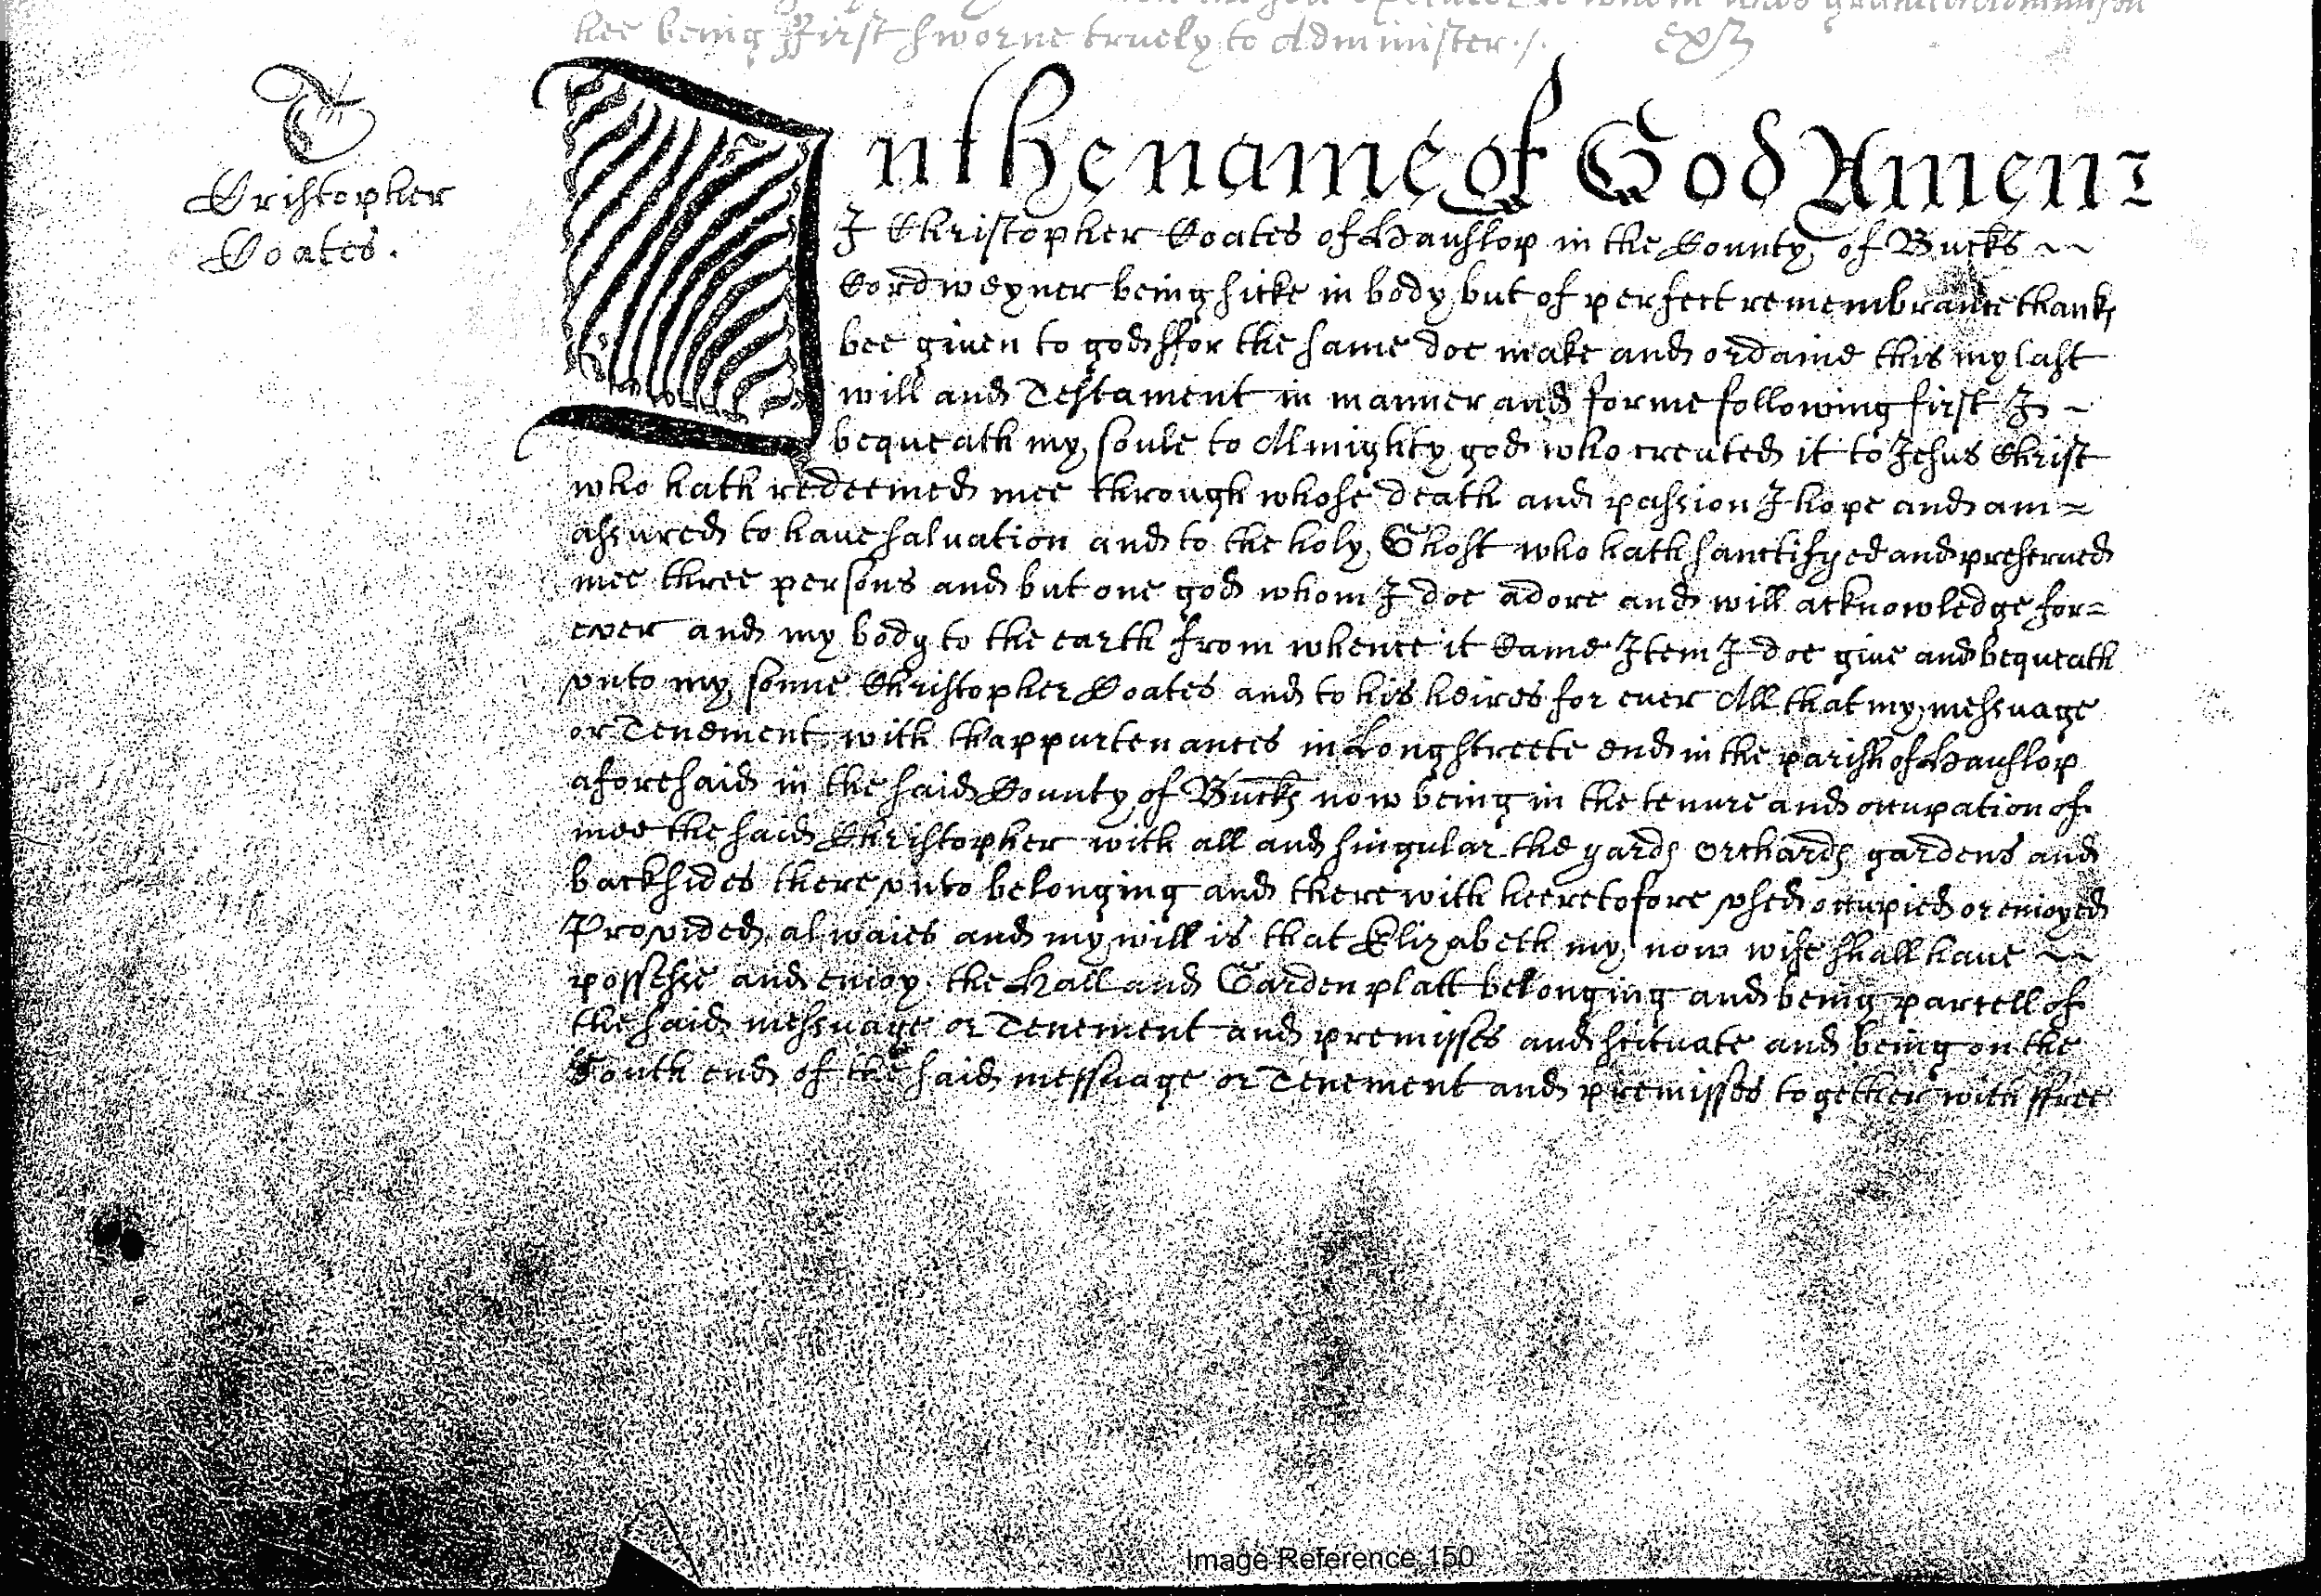 hee being ffirst sworne truely to Administer ./.
T
Cristopher
Coates.
In the name of God Amen
I Christopher Coates of Hanslop in the County of Bucks ~~
Cordweyner being sicke in body but of perfect remembrance thanks
bee given to god ffor the same doe make and ordaine this my last
will and Testament in manner and forme following first I ~
bequeath my soule to Almighty god who created it to Jesus Christ
who hath redeemed mee through whose death and passion I hope and am ~
assured to haue saluation and to the holy Ghost who hath sanctifyed and preserued
mee three persons and but one god whom I doe adore and will acknowledge for=
ever and my body to the earth from whence it Came Item I doe giue and bequeath
vnto my sonne Christopher Coates and to his heires for euer All that my messuage
or Tenement with thappurtenances in Longstreete end in the parish of Hanslop
aforesaid in the said County of Bucks now being in the tenure and occupation of
mee the said Christopher with all and singular the yards Orchards gardens and
backsides therevnto belonging and therewith heeretofore vsed occupied or enioyed
Provided alwaies and my will is that Elizabeth my now wife shall haue ~~
possesse and enioy the Hall and Garden platt belonging and being parcell of
the said messuage or Tenement and premisses and scituate and being on the
South end of the said messuage or Tenement and premisses together with ffree
Image Reference 150